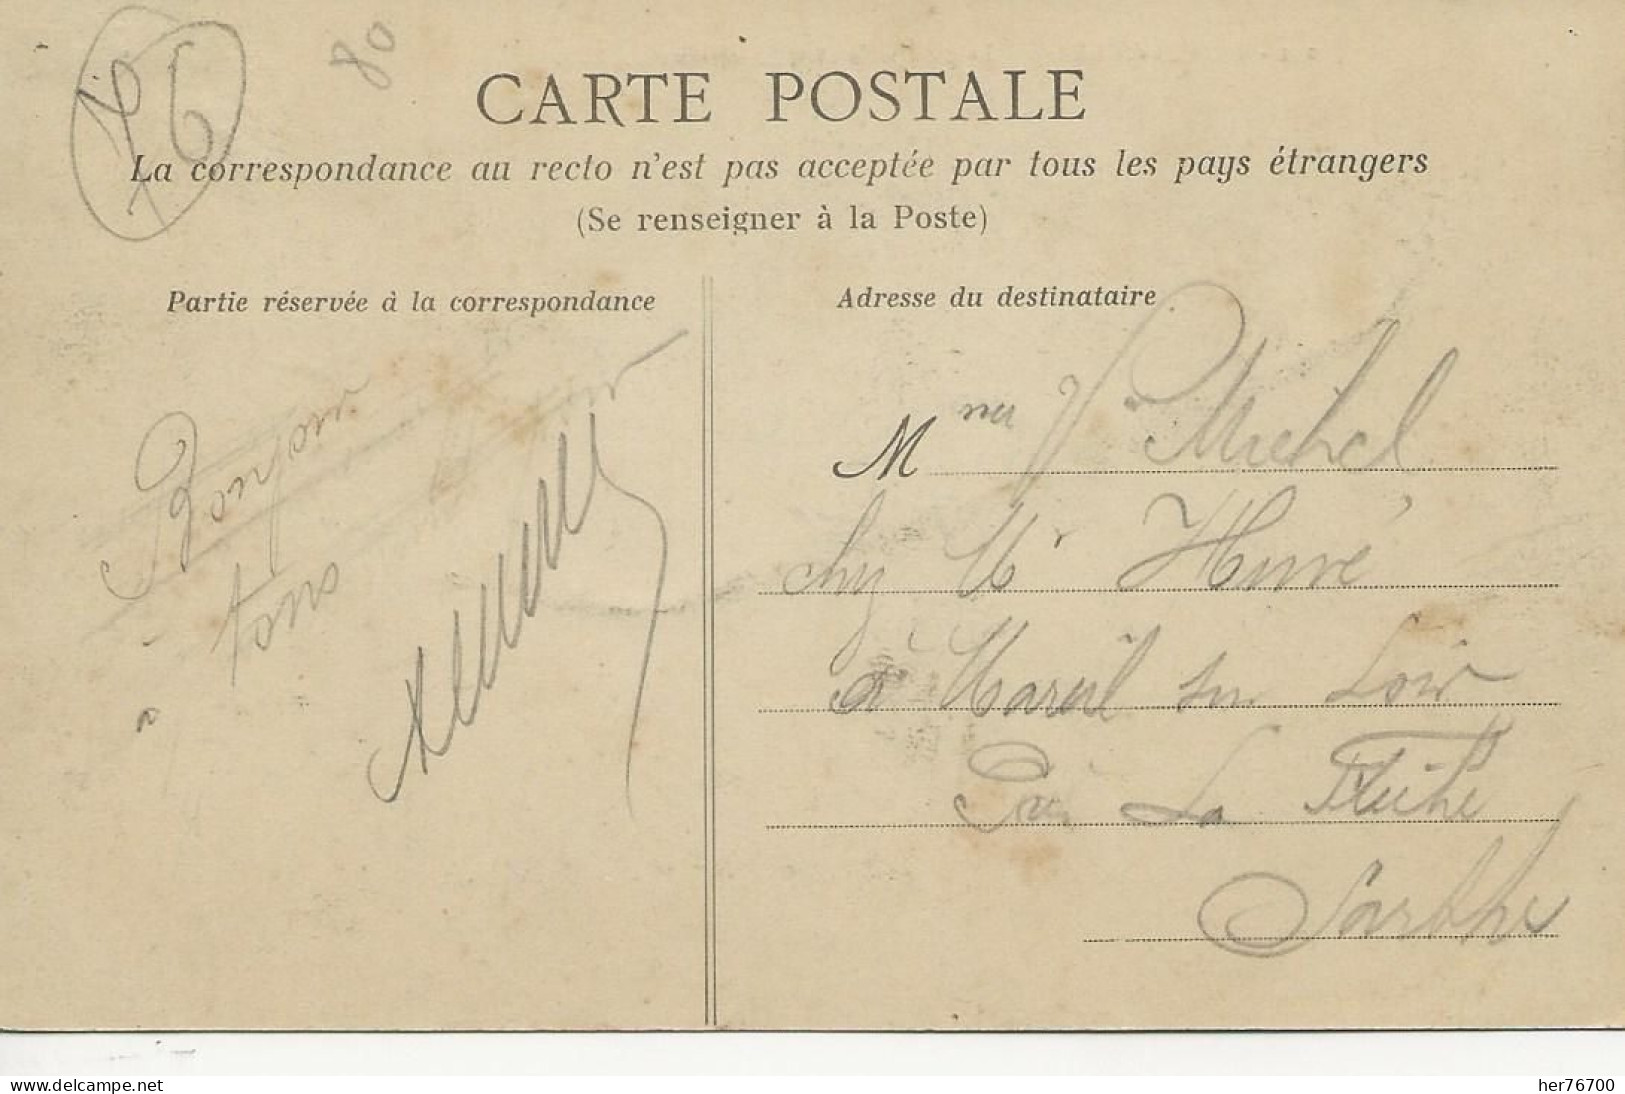 76
80
CARTE POSTALE
La correspondance au recto n'est pas acceptée par tous les pays étrangers
(Se renseigner à la Poste)
Partie réservée à la correspondance
Adresse du destinataire
Bonjour
à tous
Mme Vve Michel
chez Mr Huvé
à Mareil sur Loir
Près La Flèche
Sarthe
www.delcampe.net
her76700